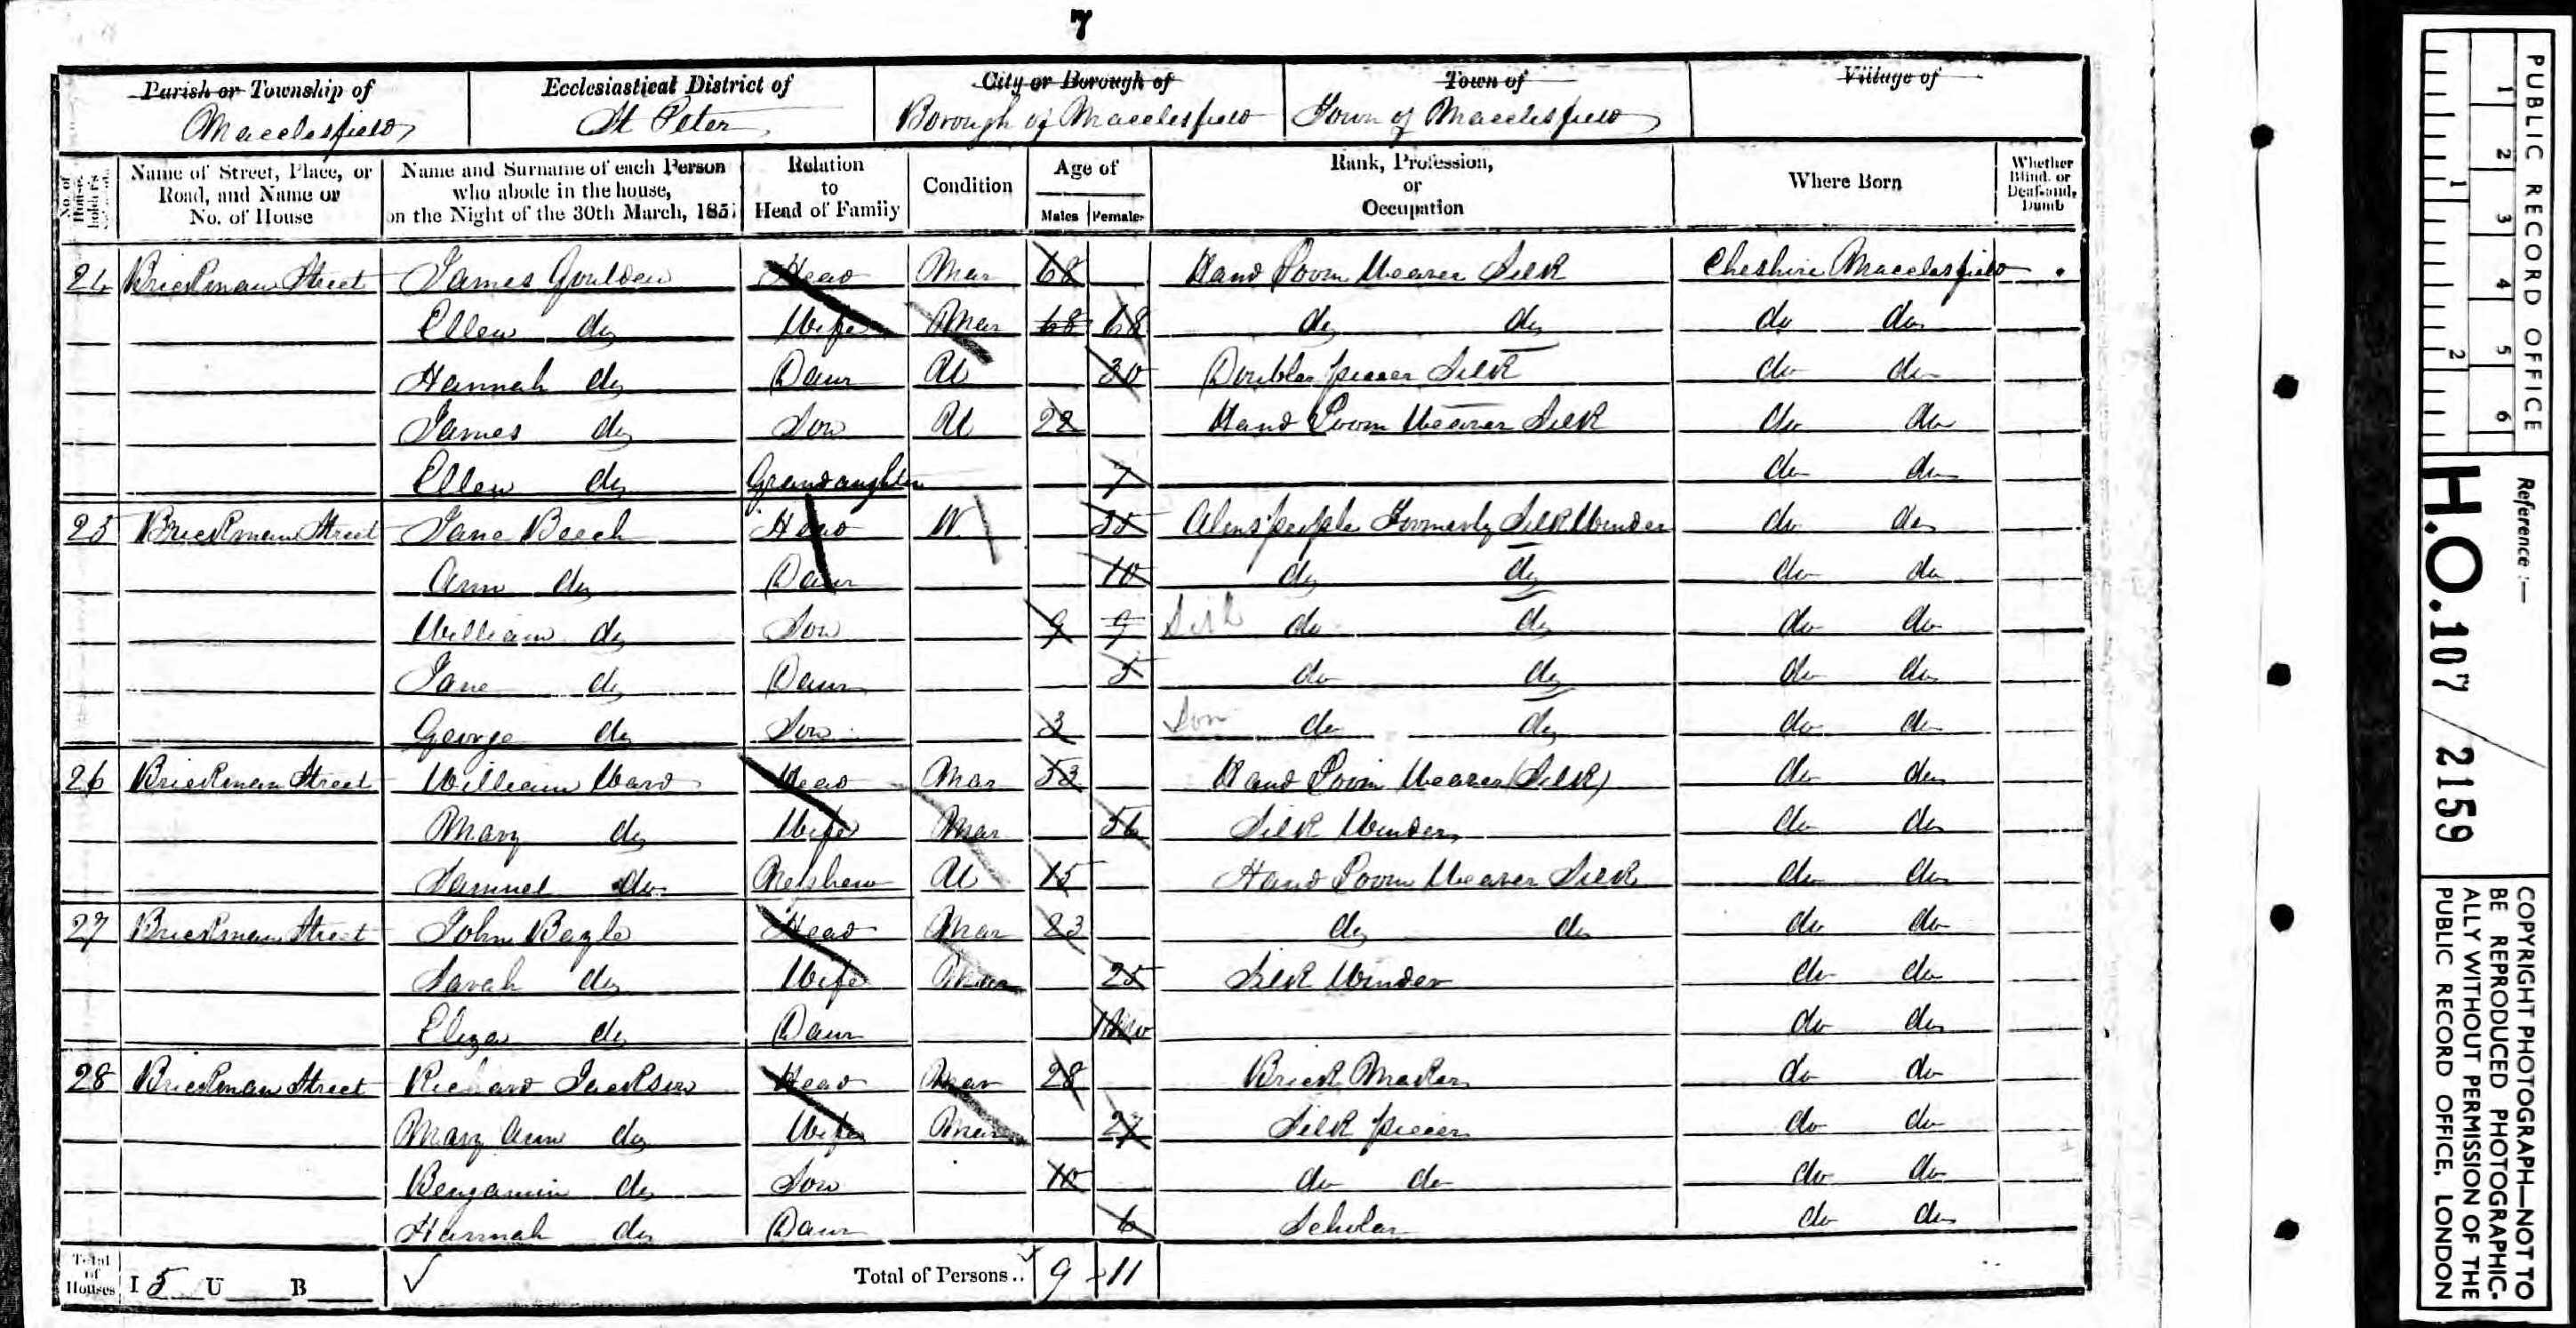 7
Parish or Township of Ecclesiastical District of City or Borough of Town of Village of
Macclesfield St Peter Borough of Macclesfield Town of Macclesfield
No. of House-holder's Name of Street, Place, or Road, and Name or No. of House Name and Surname of each Person who abode in the house, on the Night of the 30th March, 1851 Relation to Head of Family Condition Age of Males Females Rank, Profession, or Occupation Where Born Whether Blind, or Deaf-and-Dumb
24 Brickman Street James Goulden Head Mar 68 Hand Loom Weaver Silk Cheshire Macclesfield
Ellen do Wife Mar 68 68 do do do do
Hannah do Daur U 30 Doubler piecer Silk do do
James do Son U 22 Hand Loom Weaver Silk do do
Ellen do Grandaughter 7 do do
25 Brickman Street Jane Beech Head W 35 Alms people Formerly Silk Winder do do
Ann do Daur 10 do do do do
William do Son 9 9 do do do do
Jane do Daur 5 do do do do
George do Son 3 Son do do do do
26 Brickman Street William Ward Head Mar 53 Hand Loom Weaver (Silk) do do
Mary do Wife Mar 56 Silk Winder do do
Samuel do Nephew U 15 Hand Loom Weaver Silk do do
27 Brickman Street John Bagle Head Mar 23 do do do do
Sarah do Wife Mar 25 Silk Winder do do
Eliza do Daur do do
28 Brickman Street Richard Jackson Head Mar 28 Brick Maker do do
Mary Ann do Wife Mar 27 Silk piecer do do
Benjamin do Son 10 do do do do
Hannah do Daur 6 Scholar do do
Total of Houses I 5 U B Total of Persons.. 9 11
PUBLIC RECORD OFFICE
1 2 3 4 5 6
1 2
Reference :-
H.O. 107 / 2159
COPYRIGHT PHOTOGRAPH—NOT TO
BE REPRODUCED PHOTOGRAPHIC-
ALLY WITHOUT PERMISSION OF THE
PUBLIC RECORD OFFICE, LONDON